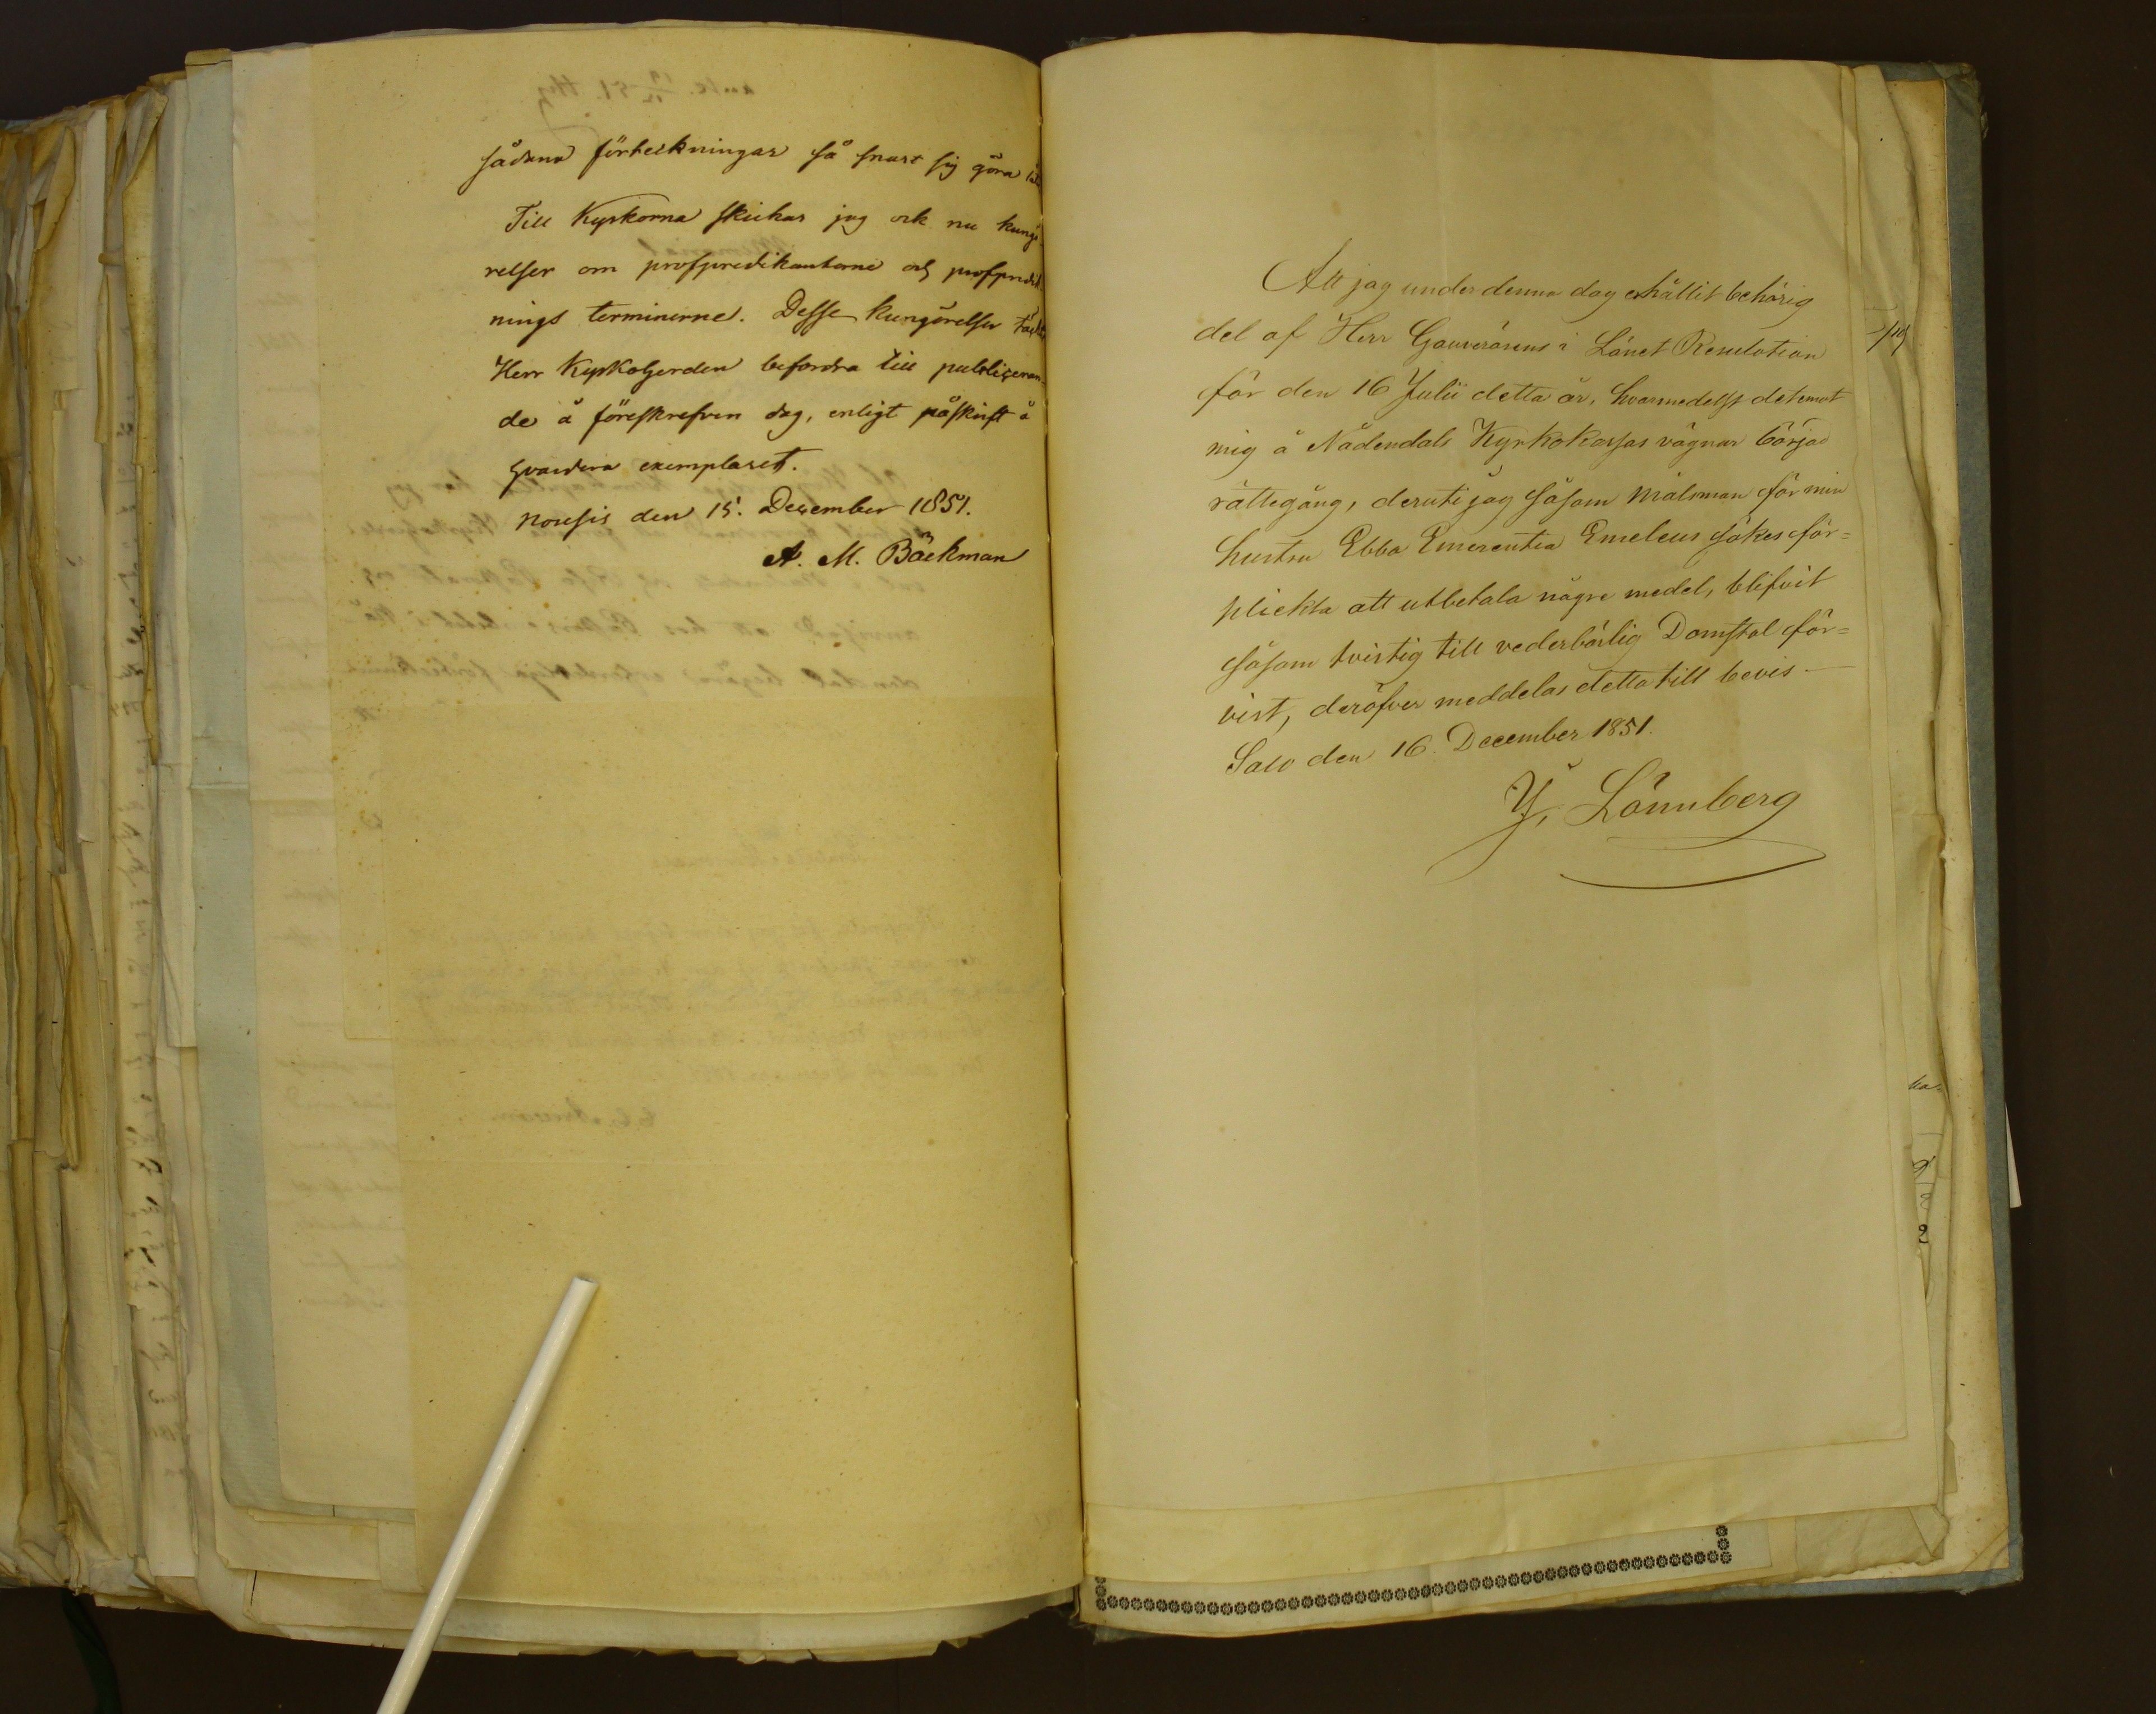 sådana förteckningar så snart sig göra
Till Kyrkorna skickar jag ock nu kungö-
relser om profpredikanterne och profpredik
nings terminerne. Desse kungörelser
Herr Kyrkoherden befordra till publiceran-
de å föreskrefven dag, enligt påskrift å
hvardera exemplaret.
Nousis den 15. December 1851.
A. M. Bäckman
Att jag under denna dag erhållit behörig
del af Herr Gouvernörens i Länet Resolution
för den 16 Julii detta år, hvarmedelst det emot
mig å Nådendals Kyrkokassas vägnar börjad
rättegång, deruti jag såsom målsman för min
hustru Ebba Emerentia Emeleus sökes för=
plickta att utbetala någre medel, blifvit
såsom tvistig till vederbörlig Domstol för=
vist, deröfver meddelas detta till bevis —
Salo den 16. December 1851.
Y. Lönnberg